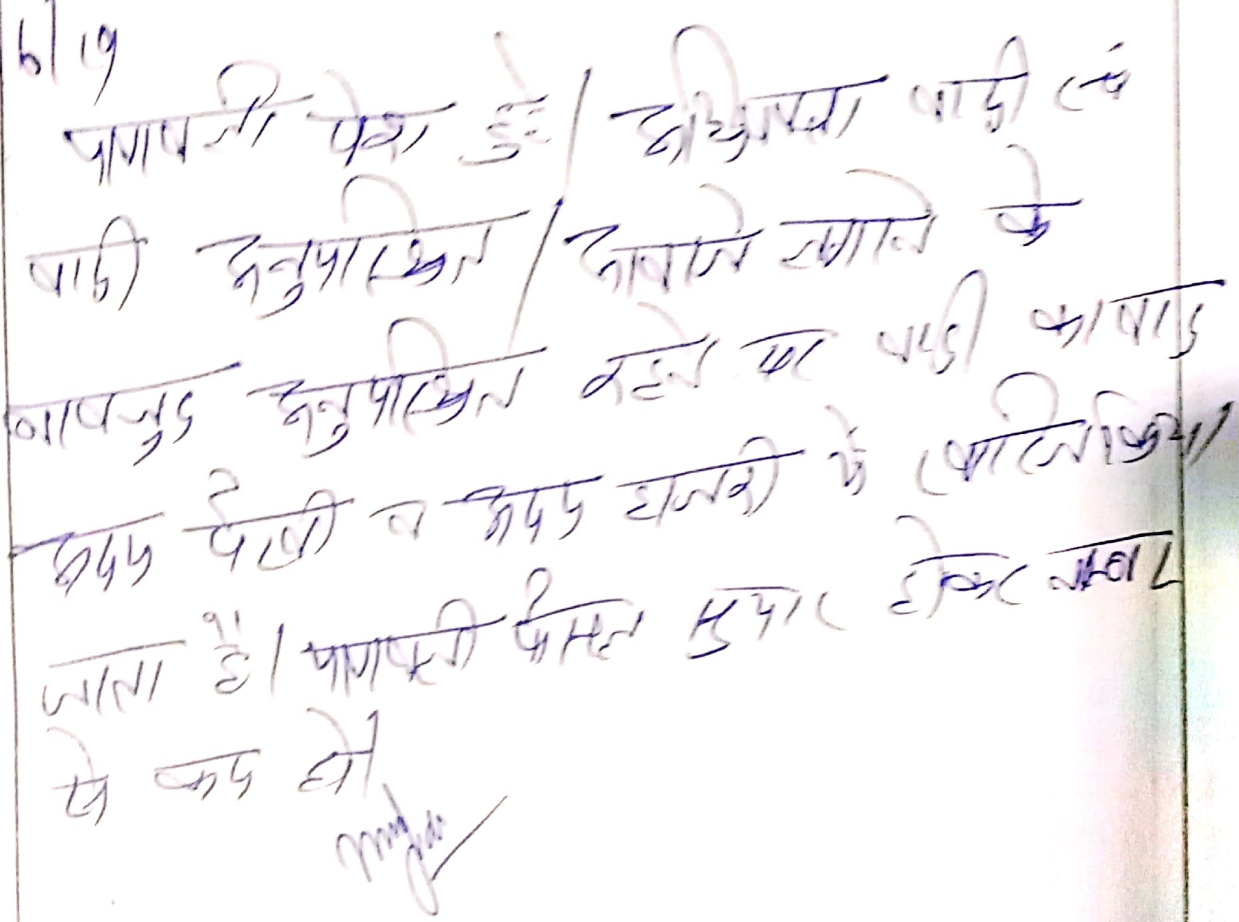 6/19
पत्रावली पेश हुई। अधिवक्ता वादी एवं
वादी अनुपस्थित। आवाजे लगाने के
बावजुद अनुपस्थित रहने पर वादी का वाद
अदम पैरवी व अदम हाजरी में खारिज किया
जाता है। पत्रावली फैसल शुमार होकर नम्बर
से कम हो।